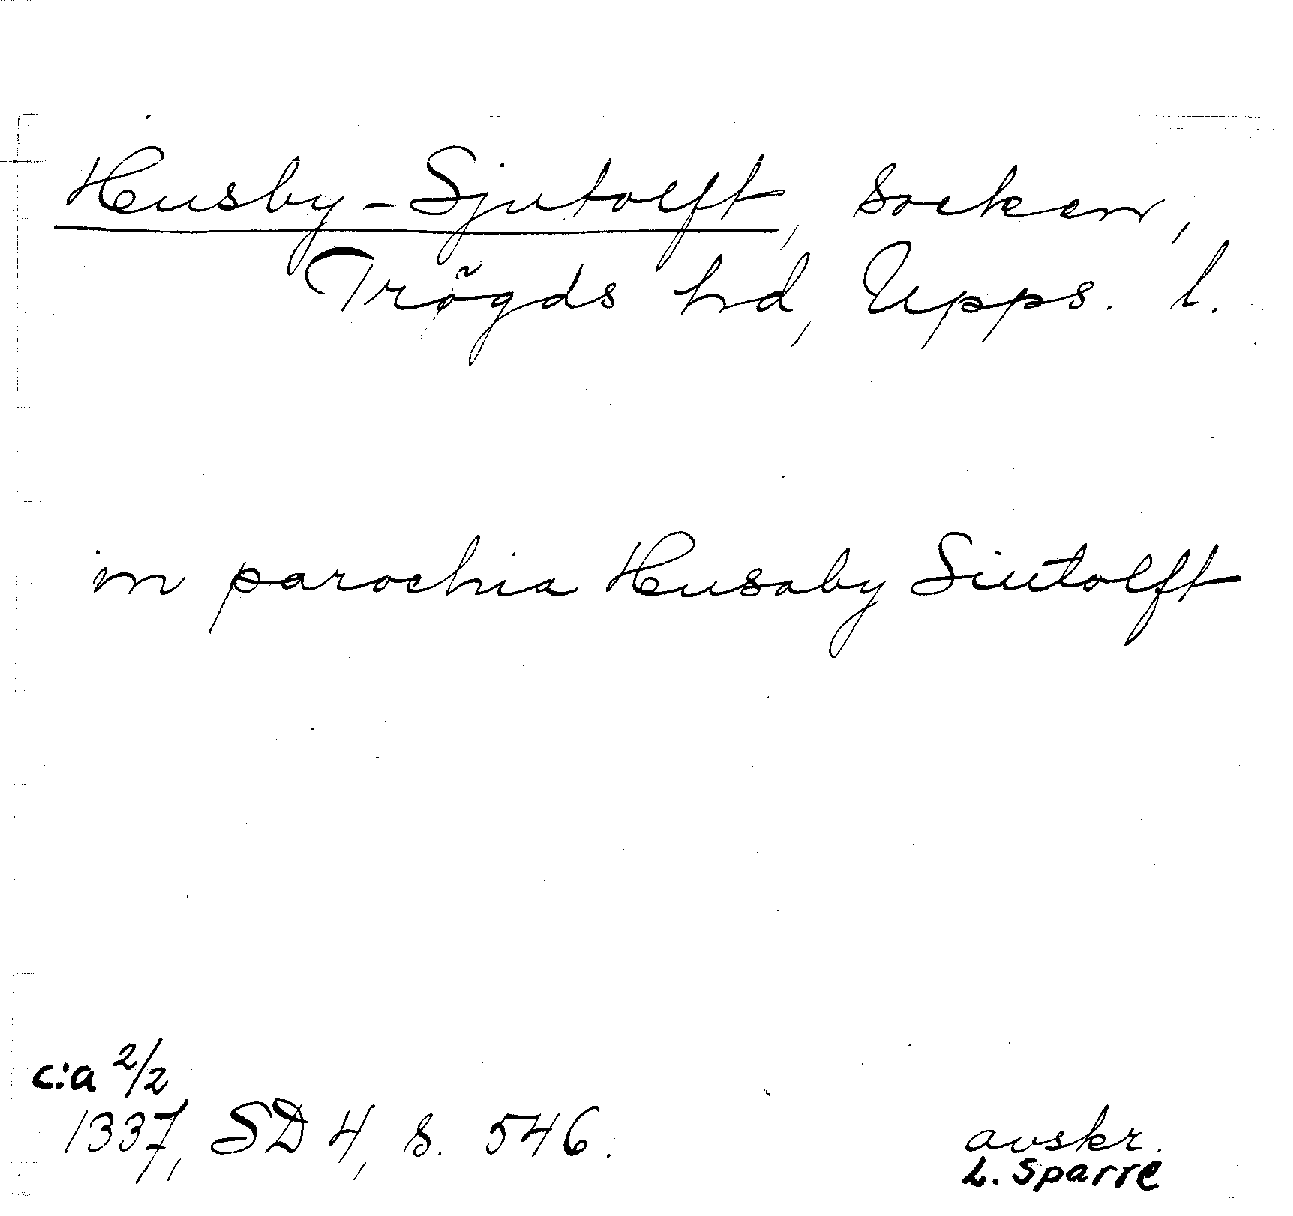 Husby-Sjutolft, socken,
Trögds hd, Upps. l.
in parochia Husaby Siutolft
c:a 2/2
1337, SD 4, s. 546.
avskr.
L. Sparre